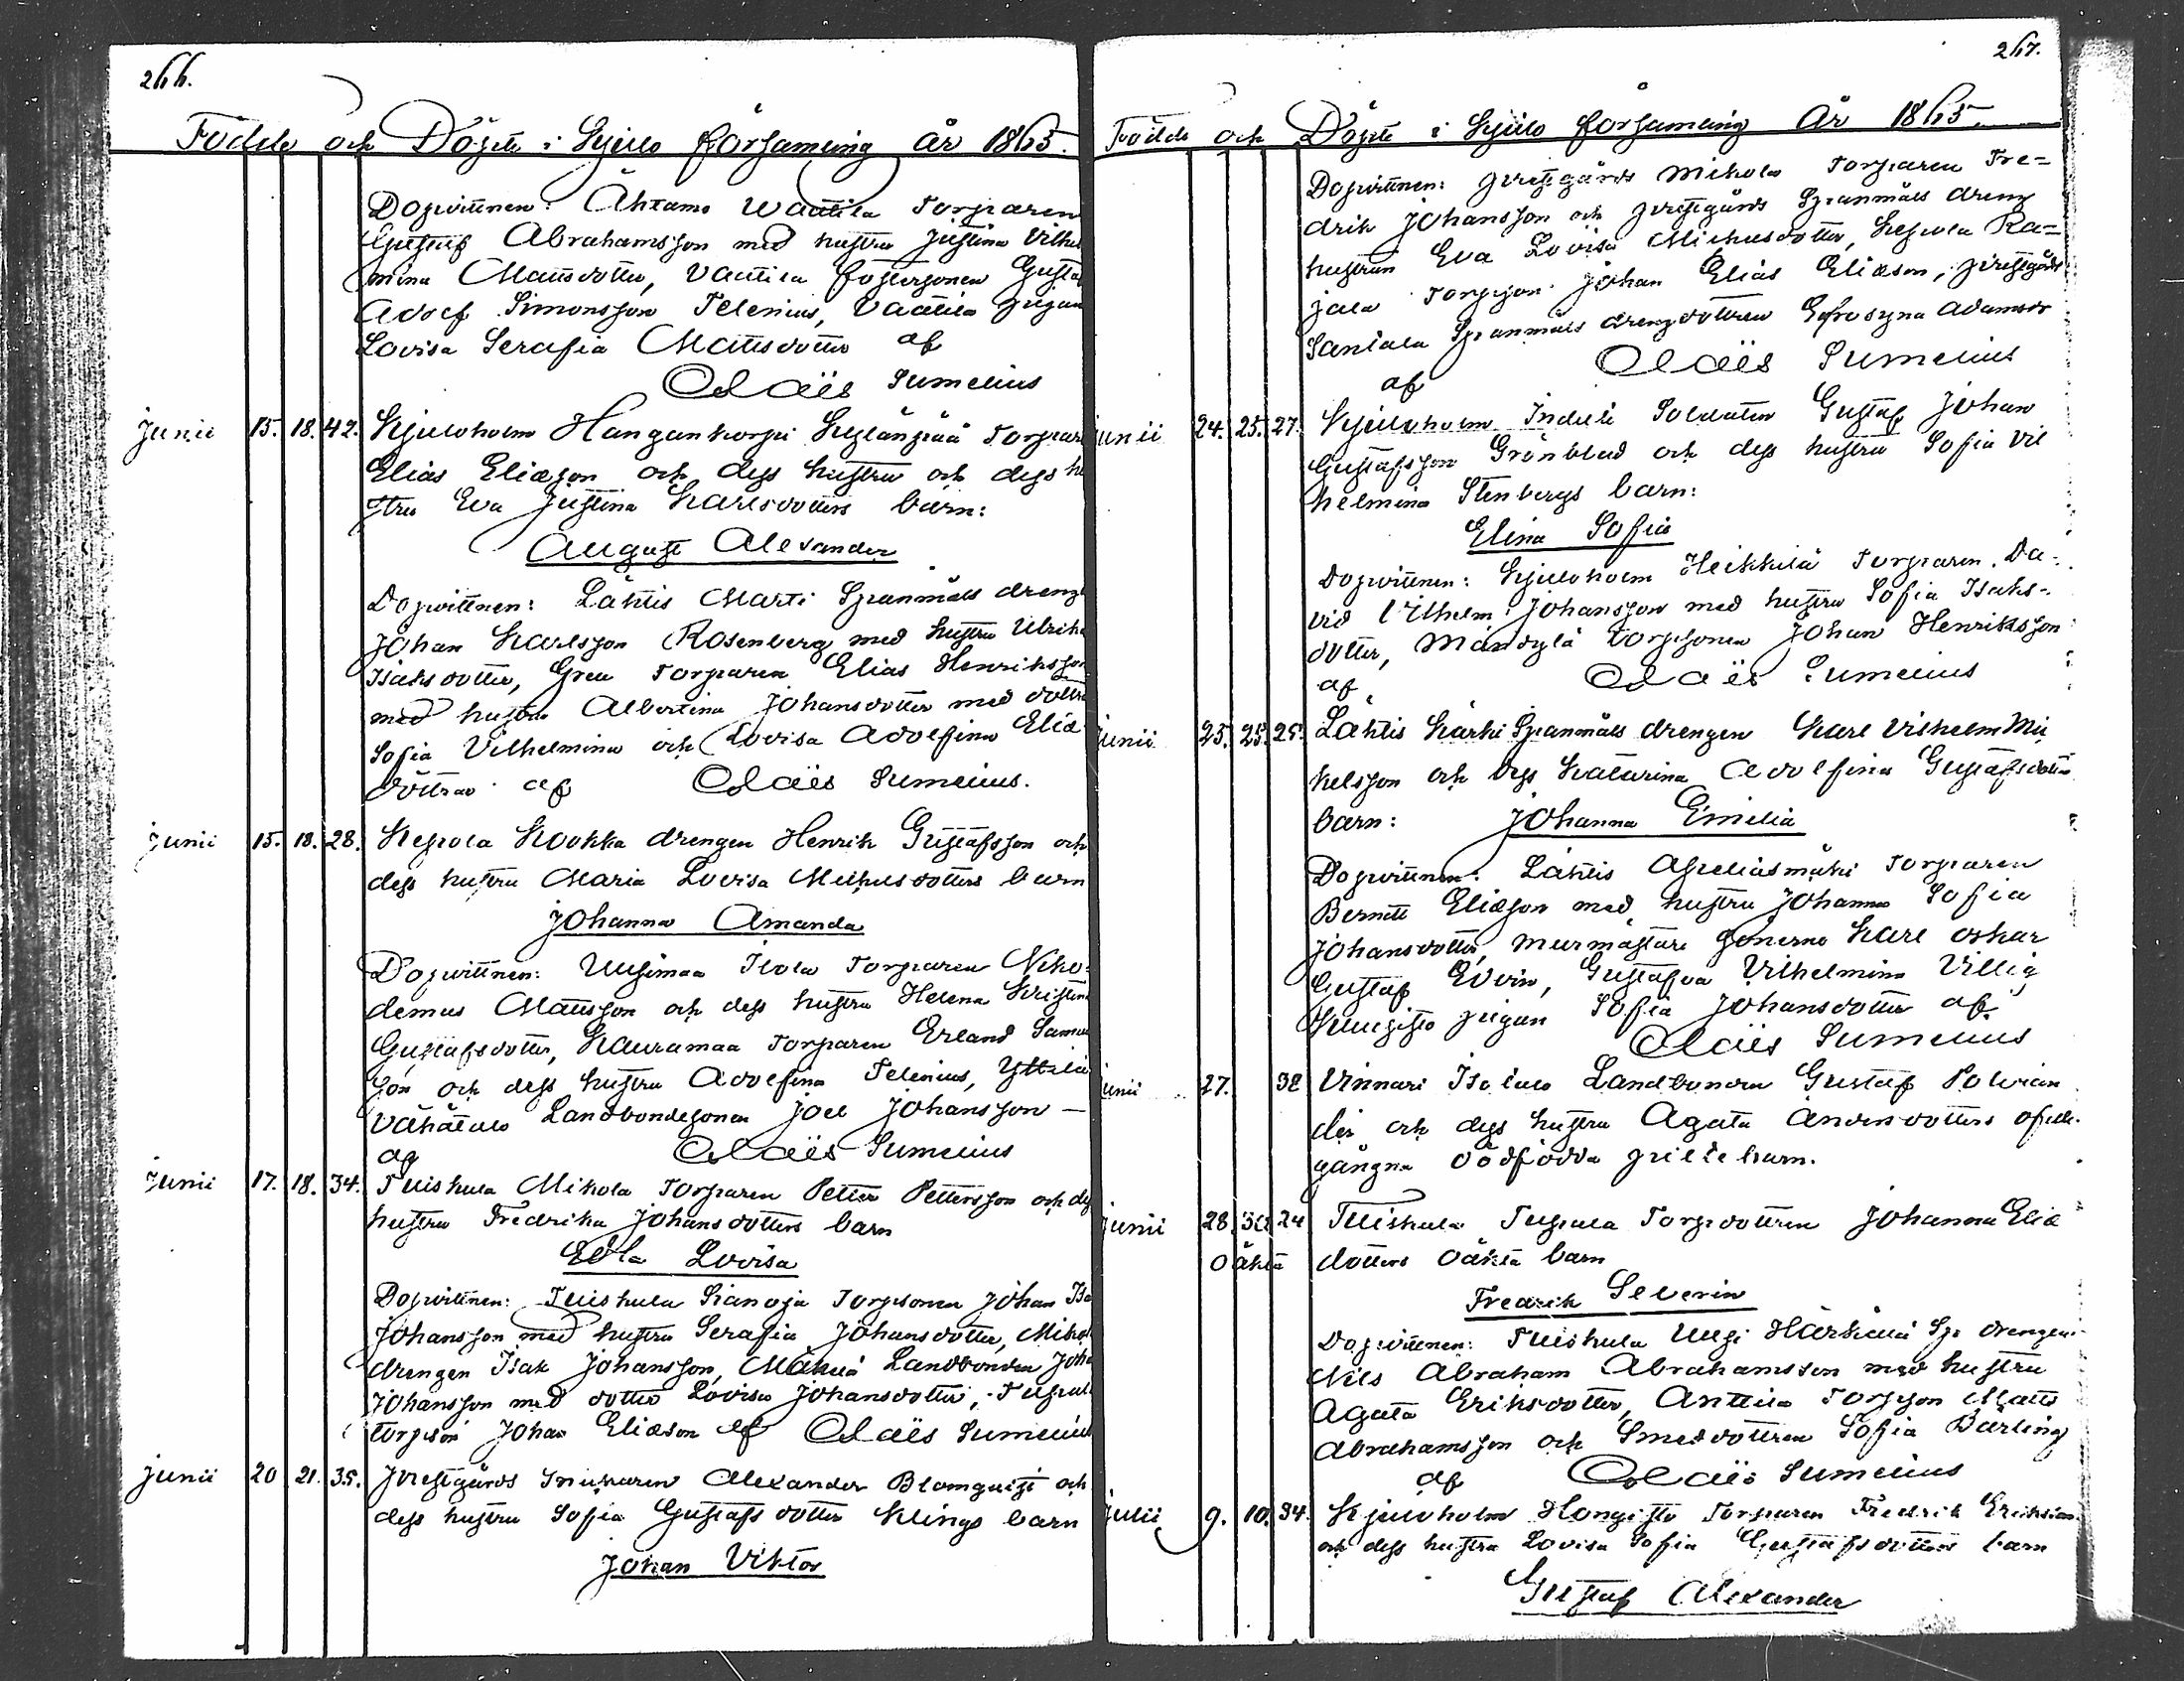 266.
Födde och Döpte i Kjulo församling år 1865.
Dopvittnen: Ahtamo Wanttila Torparen
Gustaf Abrahamsson med hustru Justina Vilhel
mina Mattsdotter, Vanttila fostersonen Gustaf
Adolf Simonsson Telenius, Vanttila pigan
Lovisa Serafia Mattsdotter af
Claës Sumelius
Junii 15. 18. 42. Kjuloholm Hangankorpi Kylänpää Torparen
Elias Eliæson och dess hustru och dess hu
stru Eva Justina Karlsdotters barn:
August Alexander
Dopvittnen: Lähtis Marti Spanmåls dreng
Johan Karlsson Rosenberg med hustru Ulrika
Isaksdotter, Torparen Elias Henriksson
med hustru Albertina Johansdotter med dottra
Sofia Vilhelmina och Lovisa Adolfina Eliæ
döttrar af Claës Sumelius.
Junii 15. 18. 28. Kepola Kookka drengen Henrik Gustafsson och
dess hustru Maria Lovisa Mickelsdotters barn
Johanna Amanda
Dopvittnen: Uusimaa Isola Torparen Niko-
demus Mattsson och dess hustru Helena Kristina
Gustafsdotter, Kauramaa Torparen Erland Samuel
son och dess hustru Adolfina Telenius, Yttilä
Vähätalo Landbondesonen Joel Johansson —
af Claës Sumelius
Junii 17. 18. 34. Tuiskula Mikola Torparen Petter Pettersson och dess
hustru Fredrika Johansdotters barn
Edla Lovisa
Dopvittnen: Tuiskula Sianoja Torpsonen Johan Isa
Johansson med hustru Serafia Johansdotter, Mikola
drengen Isak Johansson, Mäkilä Landbonden Joha
Johansson med dotter Lovisa Johansdotter, Tupala
torpson Johan Eliæson af Claës Sumelius
Junii 20 21. 35. Prestgårds Snickaren Alexander Blomquist och
dess hustru Sofia Gustafsdotter Klings barn
Johan Viktor
267.
Födde och Döpte i Kjulo församling År 1865.
Dopvittnen: prestgårds Mikola Torparen Fre=
drik Johansson och prestgårds Spanmåls dreng
hustrun Eva Lovisa Mickelsdotter, Kepola Ra=
jala Torpson Johan Elias Eliæson, prestgårds
Santala Spanmåls drengdottren Eufrosyna Adamsdr
af Claës Sumelius
Junii 24. 25. 27. Kjuloholm Indeli Soldaten Gustaf Johan
Gustafsson Grönblad och dess hustru Sofia Vil
helmina Stenbergs barn:
Elina Sofia
Dopvittnen: Kjuloholm Heikkilä Torparen Da-
vid Vilhelm Johansson med hustru Sofia Isaks-
dotter, Mandylä torpsonen Johan Henriksson
af Claës Sumelius
Junii 25. 25. 25. Lähtis Kärki Spanmåls drengen Karl Vilhelm Mi
kelsson och dess Katarina Adolfina Gustafsdotters
barn: Johanna Emelia
Dopvittnen: Lähtis Apeliasmäki Torparen
Berndt Eliæson med hustru Johanna Sofia
Johansdotter, murmästare sönerne Karl Oskar
Gustaf Edvin, Gustafva Vilhelmina Villig
pigan Sofia Johansdotter af
Claës Sumelius
Junii 27. 32 Vinnari Isotalo Landbonden Gustaf Polvian
der och dess hustru Agata Andersdotters ofull-
gångna dödfödda piltebarn.
Junii 28 30 24 Tuiskula Tupala Torpdottren Johanna Eliæ
oäkta dotters oäkta barn
Fredrik Severin
Dopvittnen: Tuiskula Uusi Härkälä Sp. drengen
Nils Abraham Abrahamsson med hustru
Agata Eriksdotter, Anttila Torpson Matts
Abrahamsson och Smeddottren Sofia Bärling
af Claës Sumelius
Julii 9. 10. 34. Kjuloholm Hongisto Torparen Fredrik Eriksson
och dess hustru Lovisa Sofia Gustafsdotters barn
Gustaf Alexander